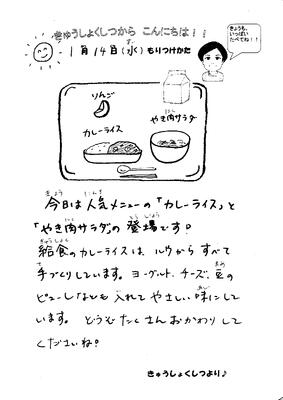 きゅうしょくしつから こんにちは!!
1月14日(水)もりつけかた
きょうも、
いっぱい
たべてね!!
りんご
カレーライス
やき肉サラダ
今日は人気メニューの「カレーライス」と
「やき肉サラダ」の登場です?
給食のカレーライスは、ルウからすべて
手づくりしています。ヨーグルト、チーズ、豆の
ピューレなども入れてやさしい味にして
います。どうぞたくさんおかわりして
くださいね?
きゅうしょくしつより♪